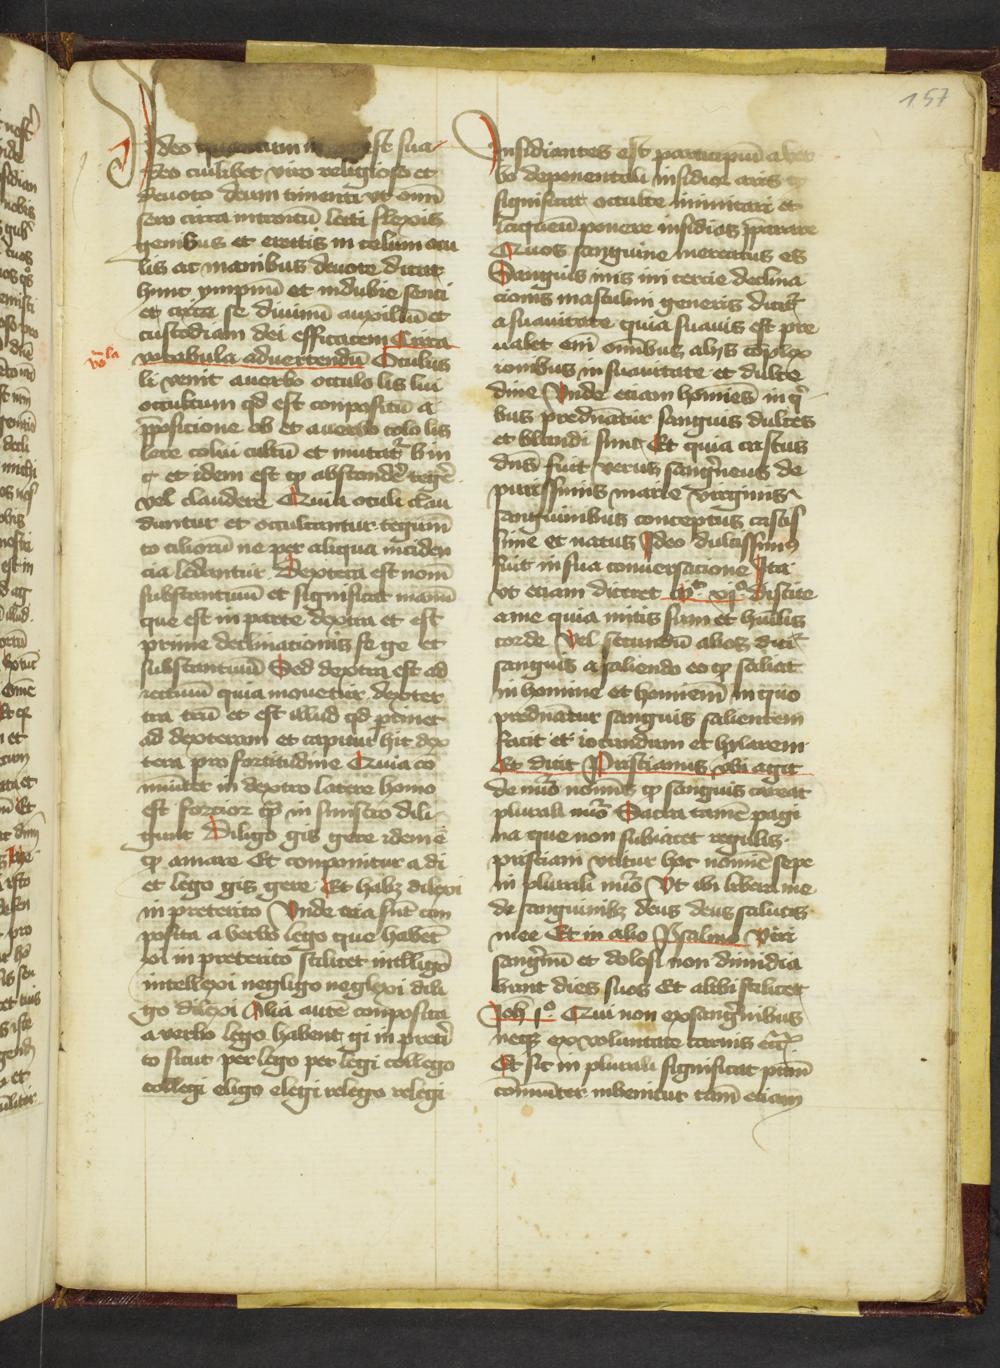 157
Ideo quantum est sua
deo cuilibet viro religioso et
devoto deum timenti vt omni
sero circa introitū lecti flexis
genibus et erectis in celum ocu
lis ac manibus devote dicat
hunc ympnū et indubie senci
et circa se divinū auxiliū et
custodiam dei efficacem Circa
vocabula advertendū Oculus
voͣla
li venit a verbo occulo lis lui
occultum qd est conpositū a
ꝓposicione ob et a verbo colo lis
lere colui cultū et mutat' b in
c et idem est ꝙ abscondē tegē
vel claudere Quia oculi clau
duntur et occultantur tegumē
to ciliorū ne per aliqua inciden
cia ledantur Dextera est nomē
substantiuū et significat manū
que est in parte dextra et est
prime declinationis fe ge et
substantiuū Sed dextra est ad
iectiuū quia mouetur dexter
tra trū et est illud qd ptinet
ad dexteram et capitur hic dex
tera pro fortitudine Quia cō
muniter in dextro latere homo
est forcior ꝙ in sinistro dili
gunt Diligo gis gere idem ē
ꝙ amare Et componitur a di
et lego gis gere Et habꝫ dilexi
in preterito Vnde tria sūt com
posita a verbo lego que habēt
xi in preterito scilicet intelligo
intellexi negligo neglexi dili
go dilexi Alia autē composita
a verbo lego habent gi in preti
to sicut per lego per legi collego
collegi eligo elegi relego relegi
Insidiantes est participiū a ver
bo deponentali insidior aris ꝙ
significat occulte inimicari et
laqueū ponere insidias ꝓparare
Quos sanguine mercatus es
Sanguis inis ini tercie declina
cionis masculini generis dicit'
a suauitate quia suauis est pre
ualet em̄ omnibus alijs complex
ionibus in suauitate et dulce
dine Vnde etiam homines in q'
bus predōatur sanguis dulces
et blandi sunt Et quia cristus
dn̄s fuit verus sangneus de
purissimis marie virginis
sanguinibus conceptus castis
sime et natus Ideo dulcissimus
fuit in sua conuersacione Ita
vt etiam diceret Mt' xi° Discite
a me quia mitis sum et hūilis
corde Vel secundū alios dici'
sanguis a saliendo eo ꝙ saliat
in homine et hominem in quo
predōatur sanguis salientem
facit et iocundum et hylarem
Et dicit Priscianus vbi agit
de nūo nominis ꝙ sanguis careat
plurali nūo Sacra tamē pagi
na que non subiacet regulis
prisciani vtitur hoc nomine sepe
in plurali nūo Vt ibi libera me
de sanguinibꝫ deus deus salutis
mee Et in alio Psalmo Viri
sangnū et dolosi non dimidia
bunt dies suos Et alibi scilicet
Joh' 1° Qui non ex sangnibus
neqꝫ ex voluntate carnis etc
Et sic in plurali significat pctm̄
com̄uniter inuenitur tam̄ etiam